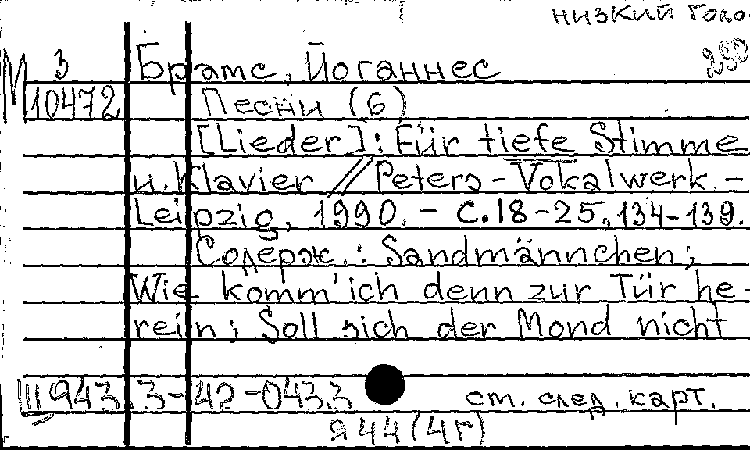 низкий голо
М 3 Брамс, Йоганнес
10472 Песни (6)
[Lieder]: Für tiefe Stimme
u. Klavier // Peters-Vokalwerk. -
Leipzig, 1990. - С.18-25, 134-139.
Содерж.: Sandmännchen;
Wie komm' ich denn zur Tür he-
rein; Soll sich der Mond nicht
III 943.3-42-043.3 ст. след. карт.
Я 44 (4г)